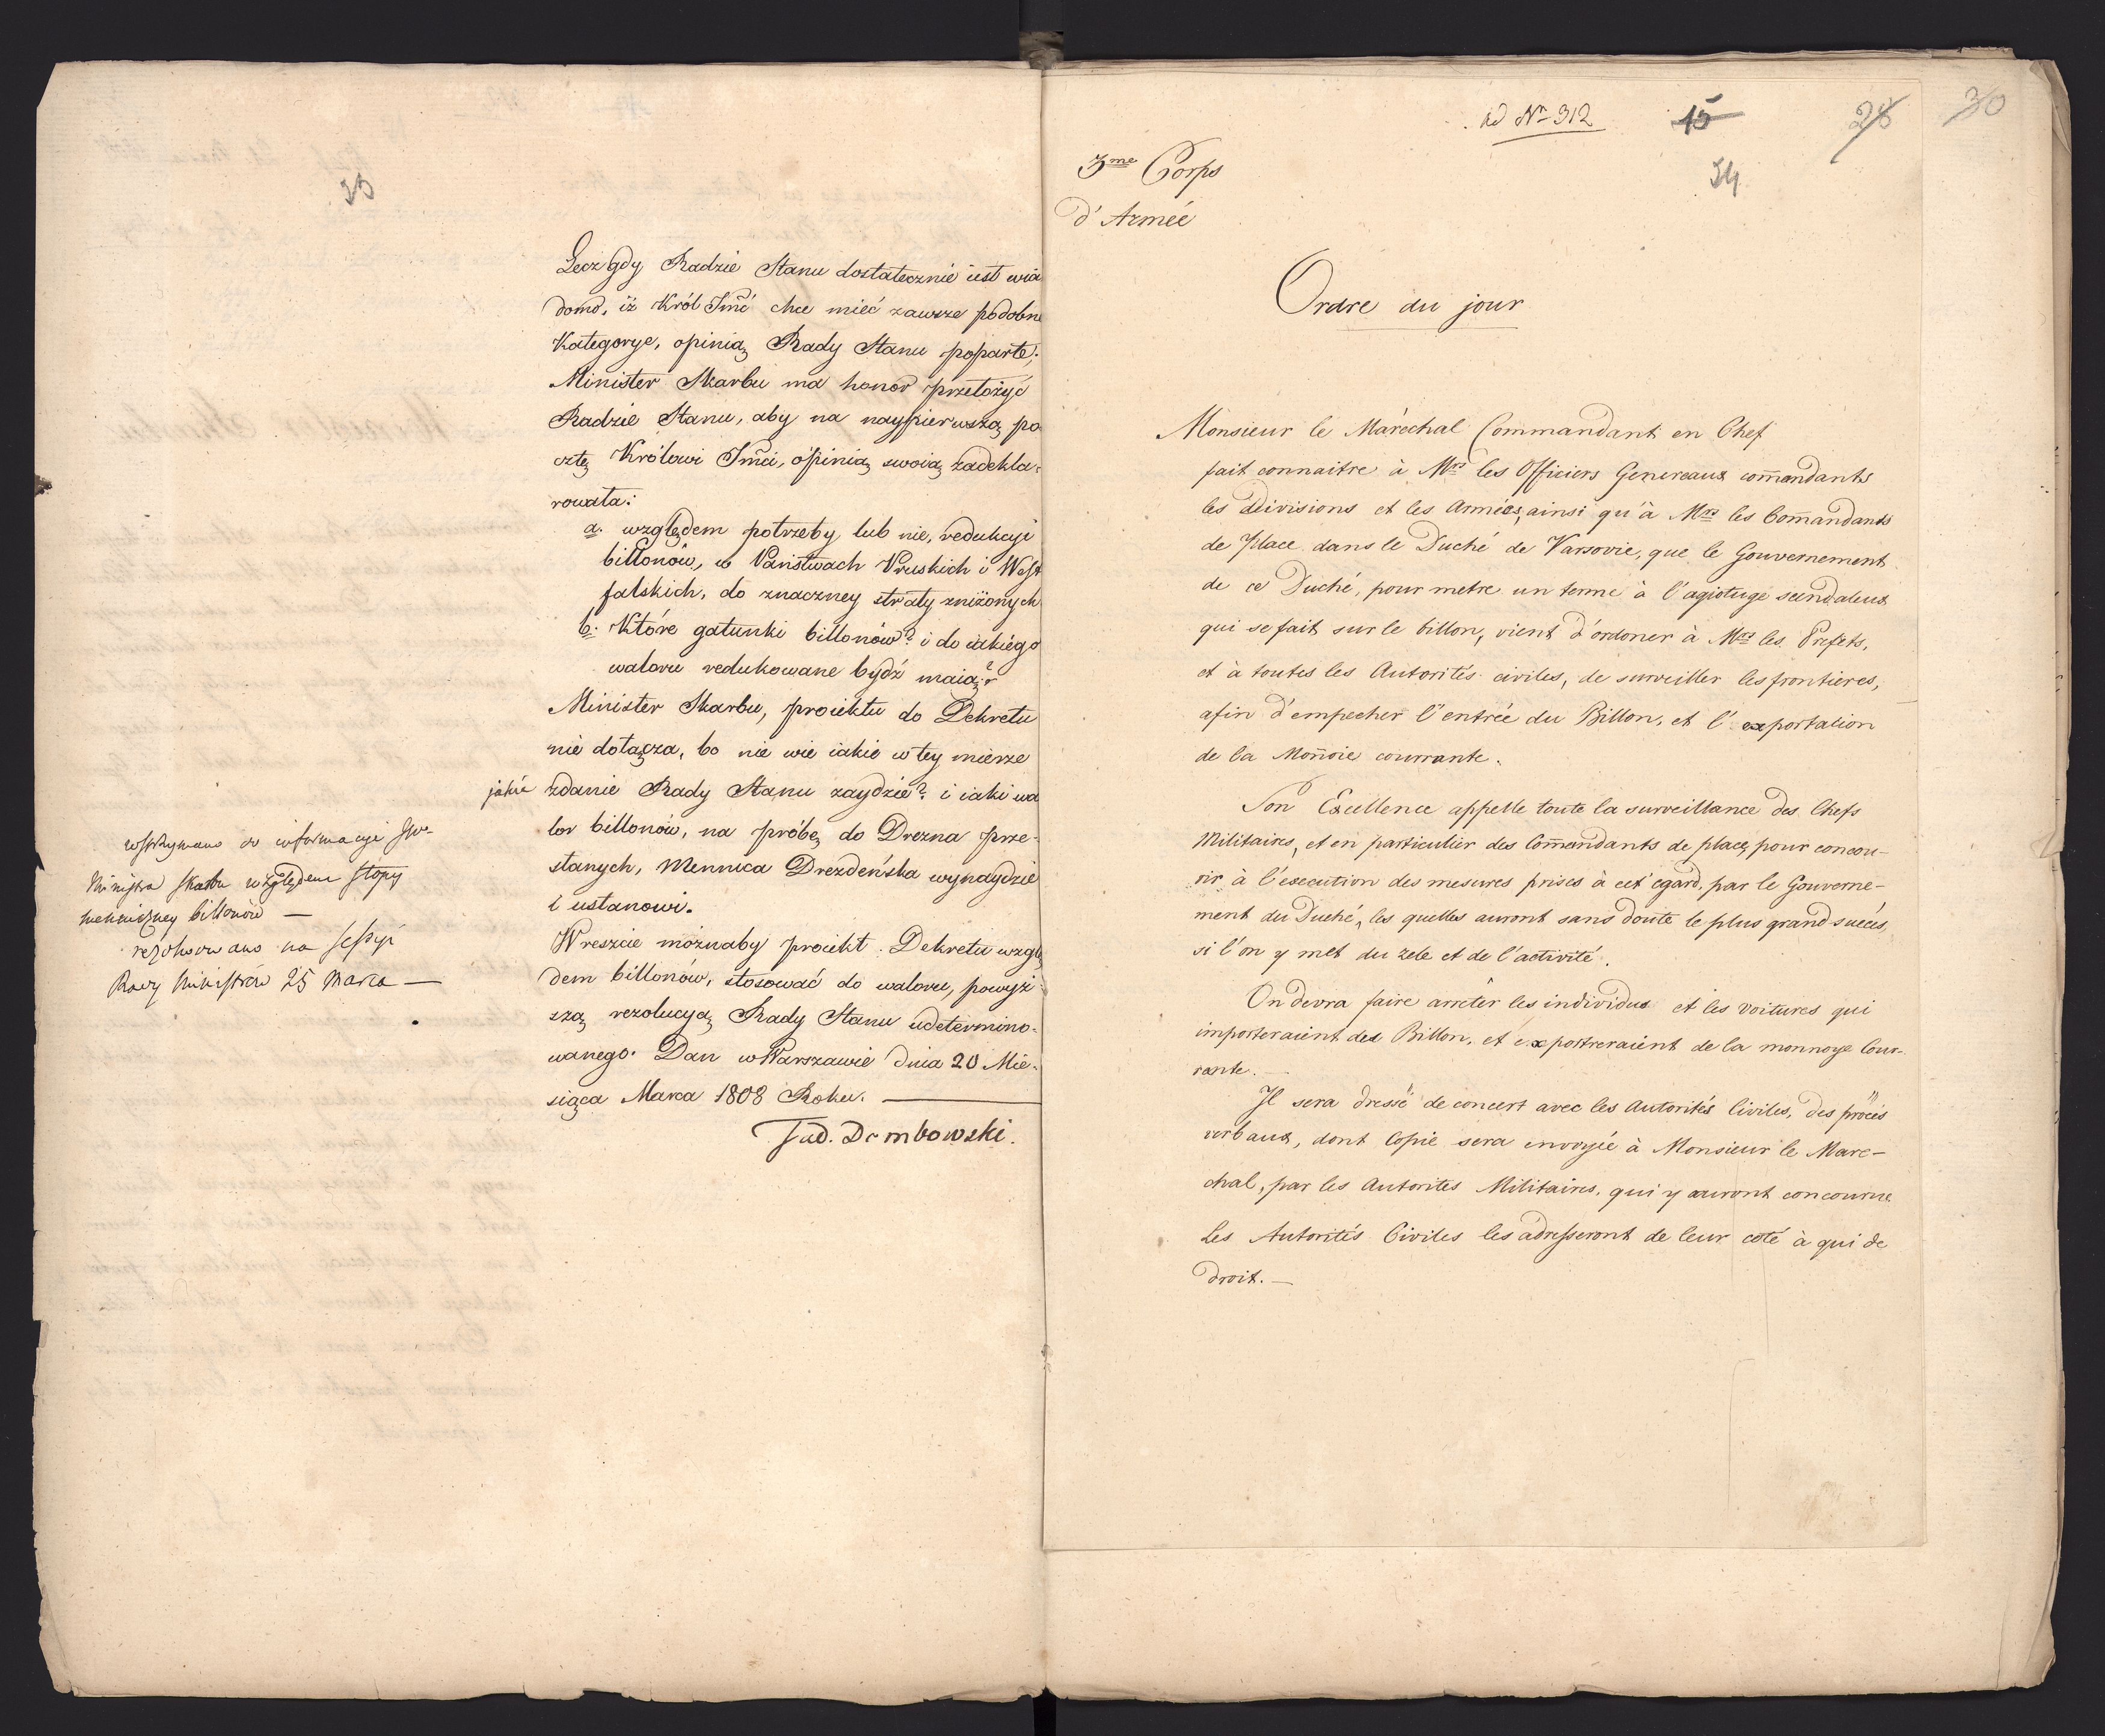 33
Lecz gdy Radzie Stanu dostatecznie iest wia
domo, iż Król Jmć chce mieć zawsze podobne
Kategorye, opinią Rady Stanu poparte;
Minister Skarbu ma honor przełożyć
Radzie Stanu, aby na naypierwszą po
cztę Królowi Jmci, opinią swoią zadekla-
rowała:
a. względem potrzeby lub nie, redukcyi
billonów, w Państwach Pruskich i West
falskich, do znaczney straty zniżonych
b. Które gatunki billonów? i do iakiego
waloru redukowane bydź maią?
Minister Skarbu, proiektu do Dekretu
nie dołącza, bo nie wie iakie w tey mierze
jakie zdanie Rady Stanu zaydzie? i iaki wa
lor billonów, na próbę do Drezna prze-
słanych, Mennica Drezdeńska wynaydzie
i ustanowi.
Wreszcie możnaby proiekt Dekretu wzglę
dem billonów, stosować do waloru, powyż
szą rezolucyą Rady Stanu udetermino-
wanego. Dan w Warszawie dnia 20 Mie-
siąca Marca 1808 Roku.
Tad. Dembowski.
wstrzymano do informacyi JW-
Ministra Skarbu względem stopy
menniczney billonów —
rezolwowano na sessyi
Rady Ministrów 25 Marca —
ad Nr 312
15
28
30
34
3me Corps
d'Armée
Ordre du jour
Monsieur le Maréchal Commandant en Chef
fait connaitre à Mrs les Officiers Genereaux com̄andants
les divisions et les Armées, ainsi qu'à Mrs les Com̄andants
de place dans le Duché de Varsovie, que le Gouvernement
de ce Duché, pour metre un terme à l'agiotage scandaleux
qui se fait sur le billon, vient d'ordoner à Mrs les Prefets,
et à toutes les Autorités civiles, de surveiller les frontieres,
afin d'empecher l'entrée du Billon, et l'exportation
de la Mon̄oie courrante.
Son Excellence appelle toute la surveillance des Chefs
Militaires, et en particulier des Com̄andants de place, pour concou-
rir à l'execution des mesures prises à cet egard, par le Gouverne-
ment du Duché, les quelles auront sans doute le plus grand succés,
si l'on y met du zele et de l'activité.
On devra faire arrêter les individus et les voitures qui
importeraient des Billon, et exportreraient de la monnoye Cour-
rante. —
Il sera dressé de concert avec les Autorités Civiles, des procés
verbaux, dont Copie sera envoyée à Monsieur le Mare-
chal, par les Autorites Militaires, qui y auront concourue
Les Autorités Civiles les adresseront de leur coté à qui de
droit. —